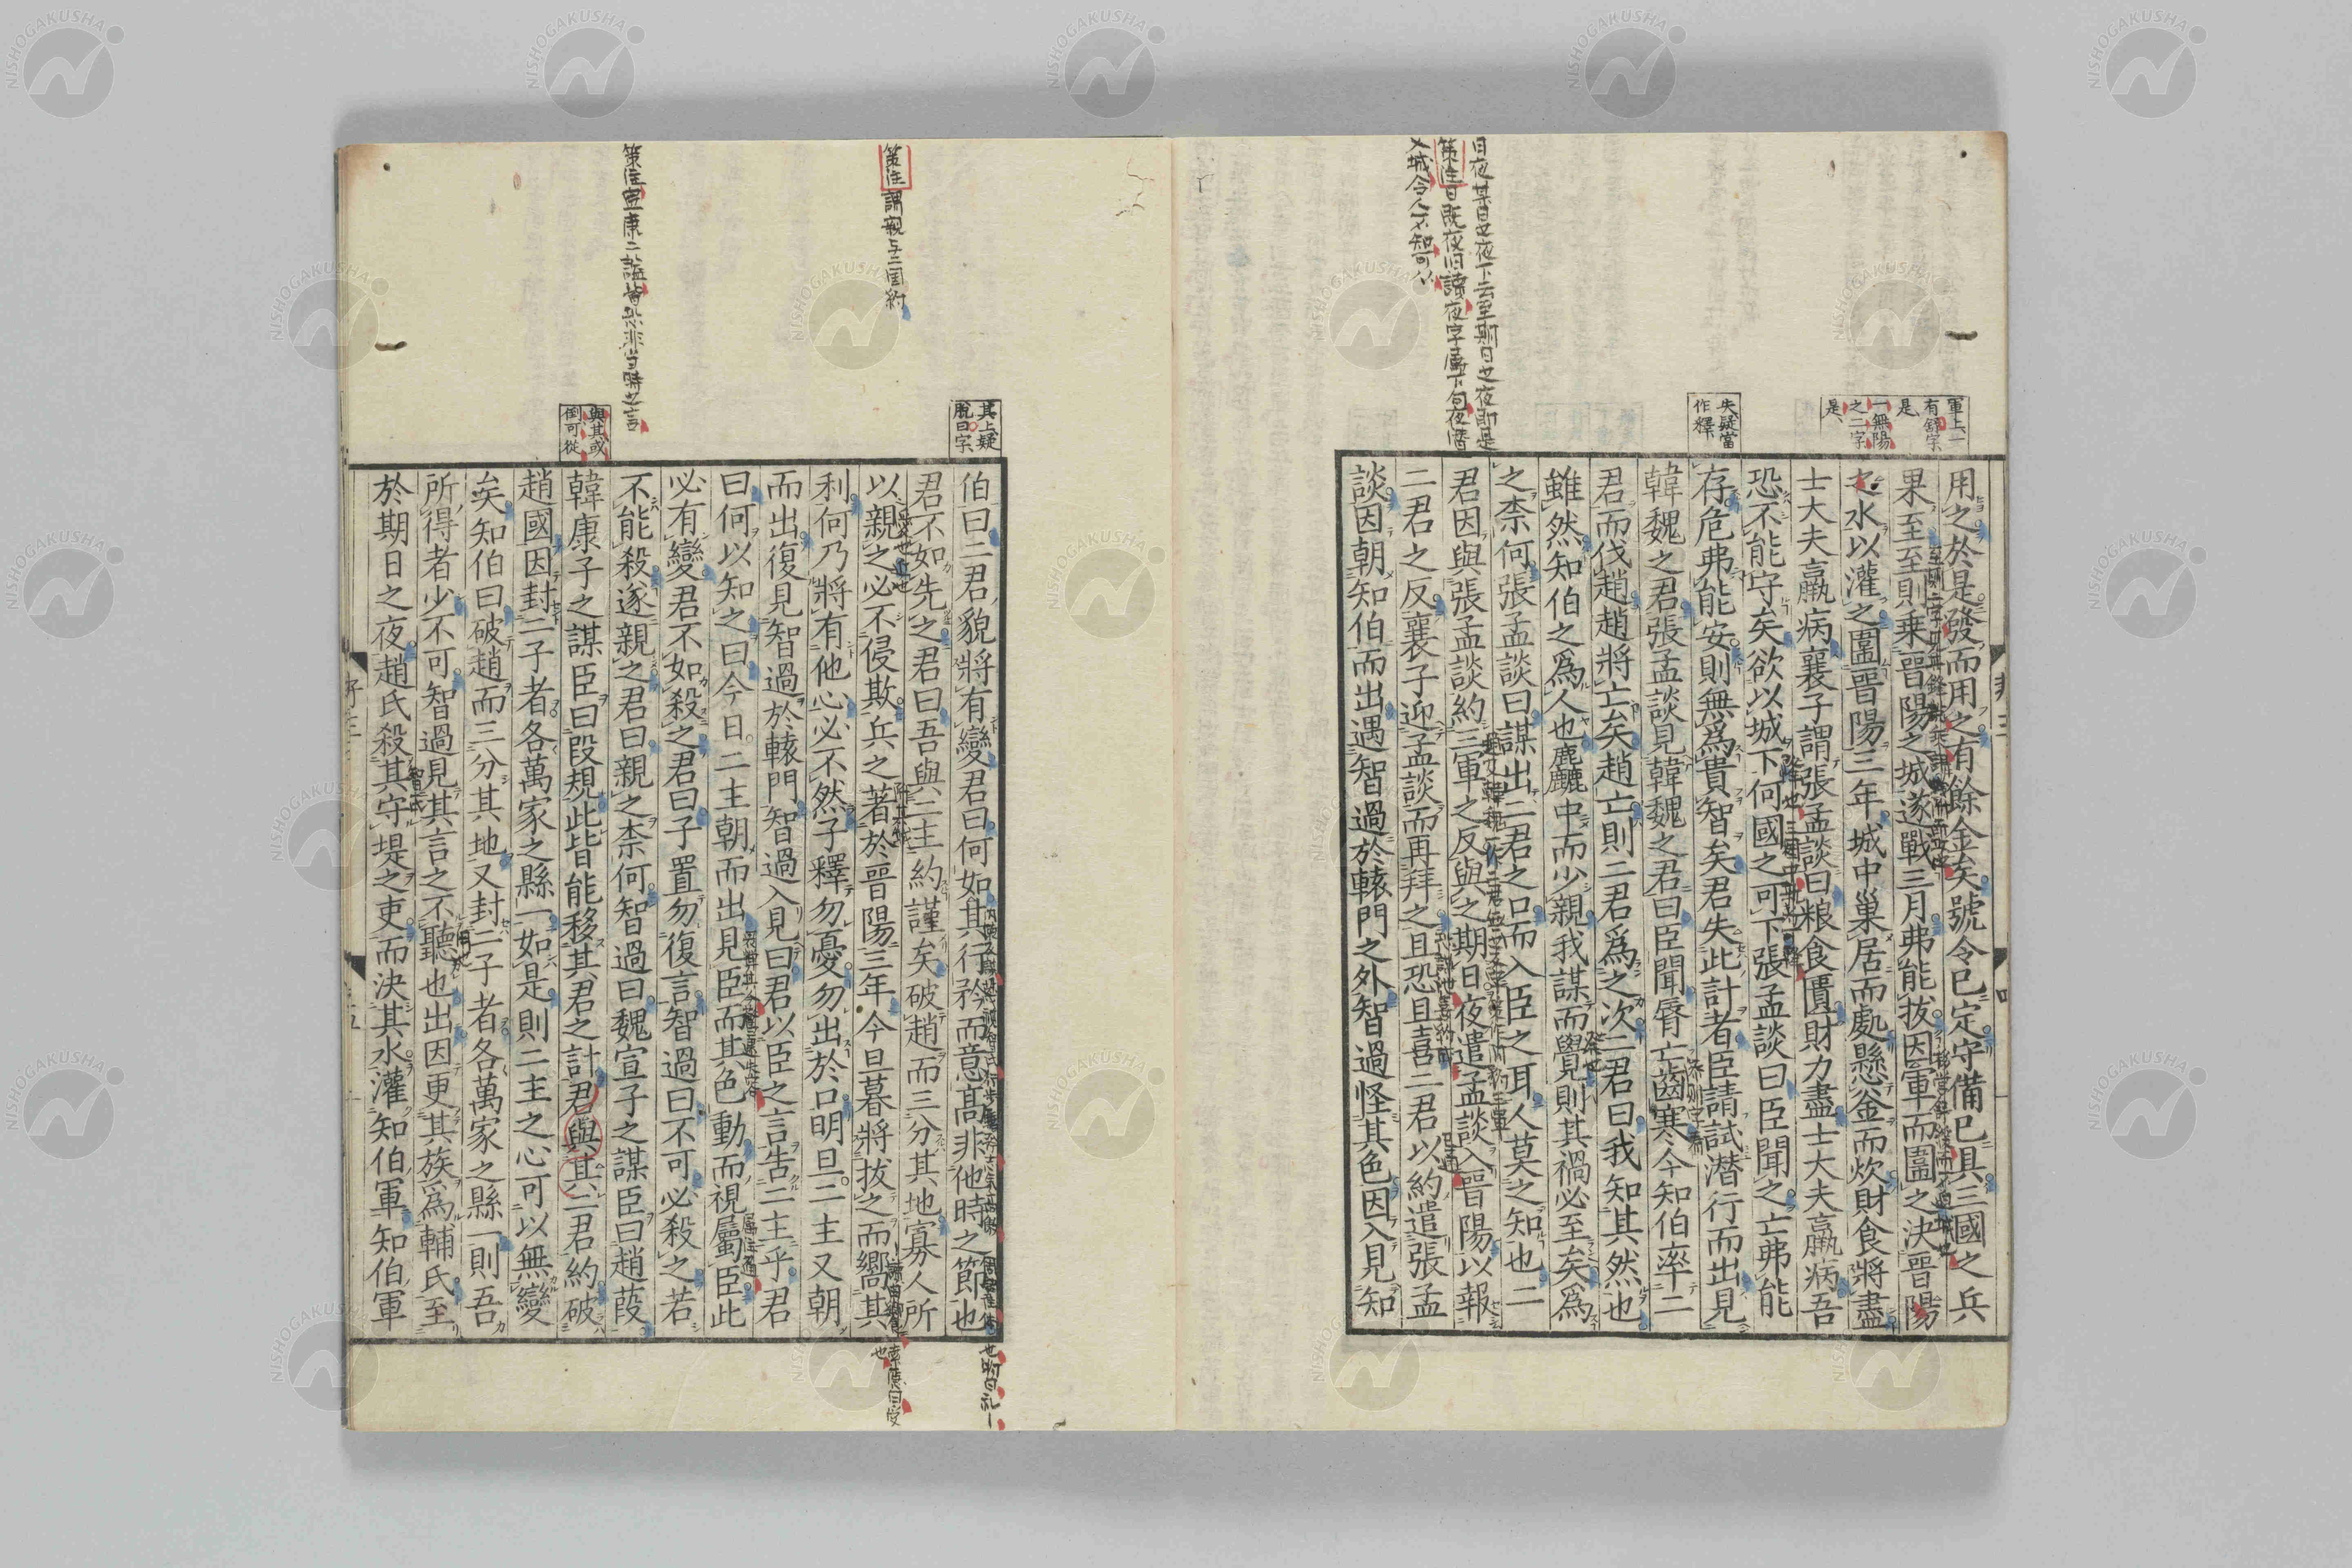 用之於是發而用之有餘金矣號令已定守備已具三國之兵
果至至則乘晉陽之城遂戰三月弗能拔因軍而圍之決晉陽
之水以灌之圍晉陽三年城中巢居而處懸釜而炊財食將盡
士大夫羸病襄子謂張孟談曰粮食匱財力盡士大夫羸病吾
恐不能守矣欲以城下何國之可下張孟談曰臣聞之亡弗能
存危弗能安則無爲貴智矣君失此計者臣請試潜行而出見
韓魏之君張孟談見韓魏之君曰臣聞脣亡齒寒今知伯率二
君而伐趙趙將亡矣趙亡則二君爲之次二君曰我知其然也
雖然知伯之爲人也麤中而少親我謀而覺則其禍必至矣爲
之柰何張孟談曰謀出二君之口而入臣之耳人莫之知也二
君因與張孟談約三軍之反與之期日夜遣孟談入晉陽以報
二君之反襄子迎孟談而再拜之且恐且喜二君以約遣張孟
談因朝知伯而出遇智過於轅門之外智過怪其色因入見知
軍上一
有舒字
是
一無陽
之二字
是
失疑當
作釋
日夜某日之夜下云至期日之夜即是
策注日既夜旧讀夜字屬下句夜潜
入城令人不知可以
伯曰二君貌將有變君曰何如其行矜而意高非他時之節也
君不如先之君曰吾與二主約謹矣破趙而三分其地寡人所
以親之必不侵欺兵之著於晉陽三年今旦暮將拔之而嚮其
利何乃將有他心必不然子釋勿憂勿出於口明旦二主又朝
而出復見智過於轅門智過入見曰君以臣之言告二主乎君
曰何以知之曰今日二主朝而出見臣而其色動而視屬臣此
必有變君不如殺之君曰子置勿復言智過曰不可必殺之若
不能殺遂親之君曰親之柰何智過曰魏宣子之謀臣曰趙葭
韓康子之謀臣曰段規此皆能移其君之計君與其二君約破
趙國因封二子者各萬家之縣一如是則二主之心可以無變
矣知伯曰破趙而三分其地又封二子者各萬家之縣一則吾
所得者少不可智過見其言之不聽也出因更其族爲輔氏至
於期日之夜趙氏殺其守堤之吏而決其水灌知伯軍知伯軍
其上疑
脫曰字
策注 謂親与三国約
與其或
倒可從
策注宣康二謚皆恐非当時之言
NISHOGAKUSHA